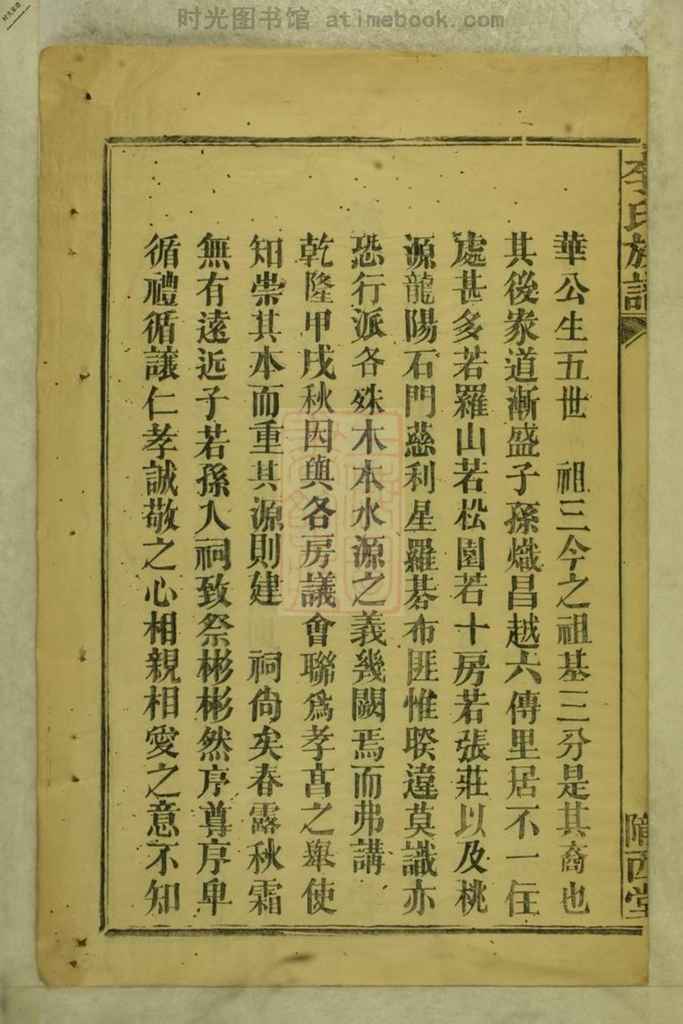 时光图书馆 atimebook.com
李氏族譜
隴西堂
華公生五世　祖三今之祖基三分是其裔也
其後家道漸盛子孫熾昌越六傳里居不一住
處甚多若羅山若松園若十房若張莊以及桃
源龍陽石門慈利星羅棊布匪惟暌違莫識亦
恐行派各殊木本水源之義幾闕焉而弗講
乾隆甲戌秋因與各房議會聯爲孝髙之舉使
知崇其本而重其源則建　祠尙矣春露秋霜
無有遠近子若孫入祠致祭彬彬然序尊序𤰞
循禮循讓仁孝誠敬之心相親相愛之意不知